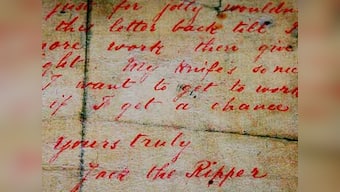 just for jolly wouldn
this letter back till I
more work then give
ght My Knife's so nice
I want to get to work
if I get a chance
Yours truly
Jack the Ripper